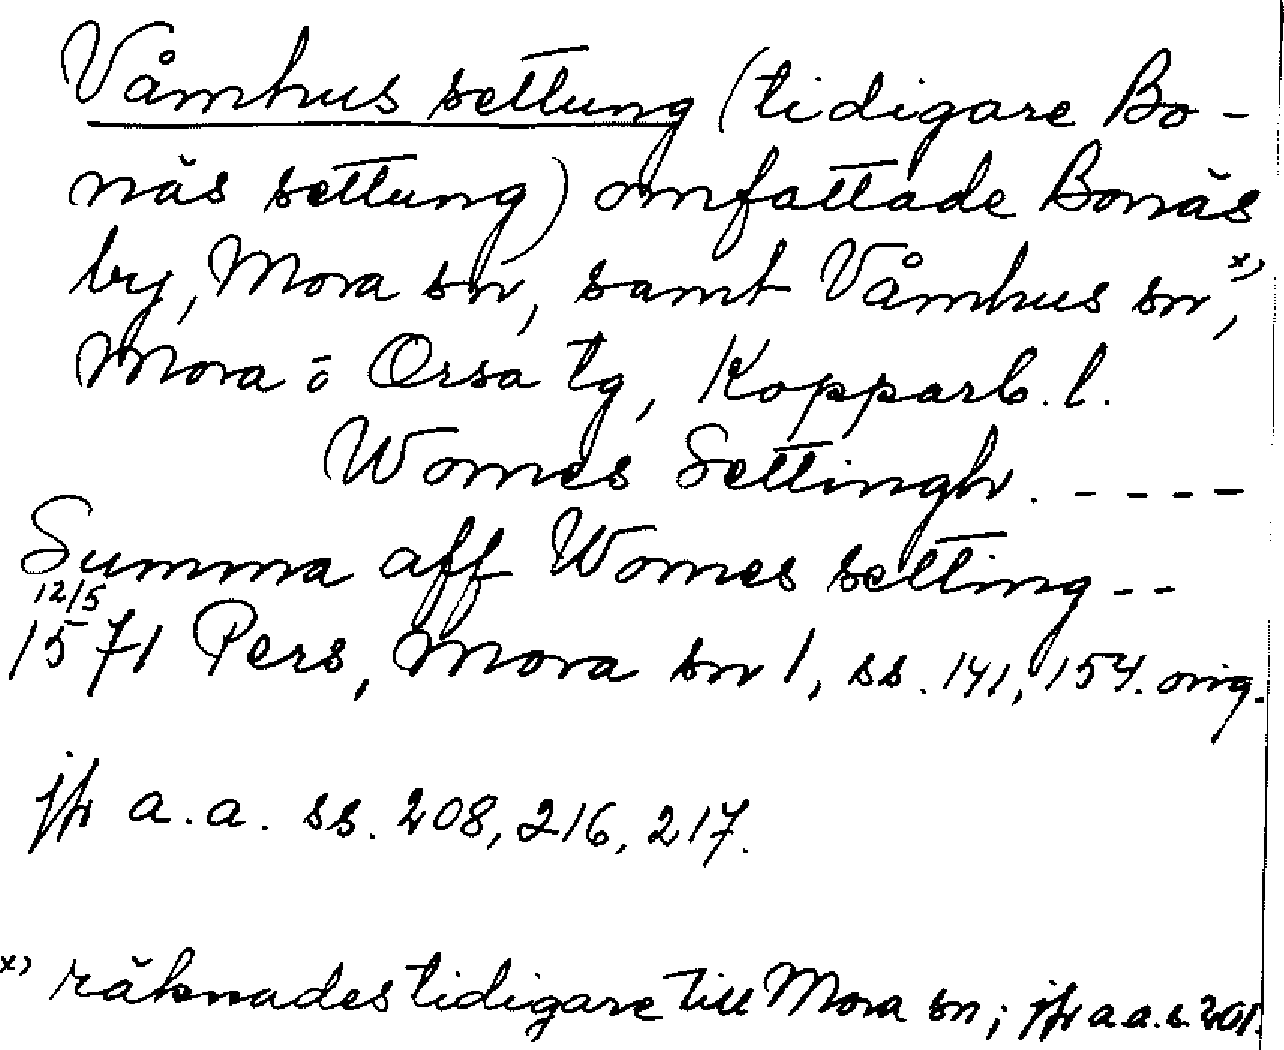 Våmhus settung (tidigare Bo-
näs settung) omfattade Bonäs
by, Mora sn, samt Våmhus sn x),
Mora o Orsa tg, Kopparb. l.
Womes Settingh. - - - -
Summa aff Womes setting - -
12/5
1571 Pers, Mora sn 1, ss. 141, 154. orig.
jfr a.a. ss. 208, 216, 217.
x) räknades tidigare till Mora sn; jfr a.a. s. 201.